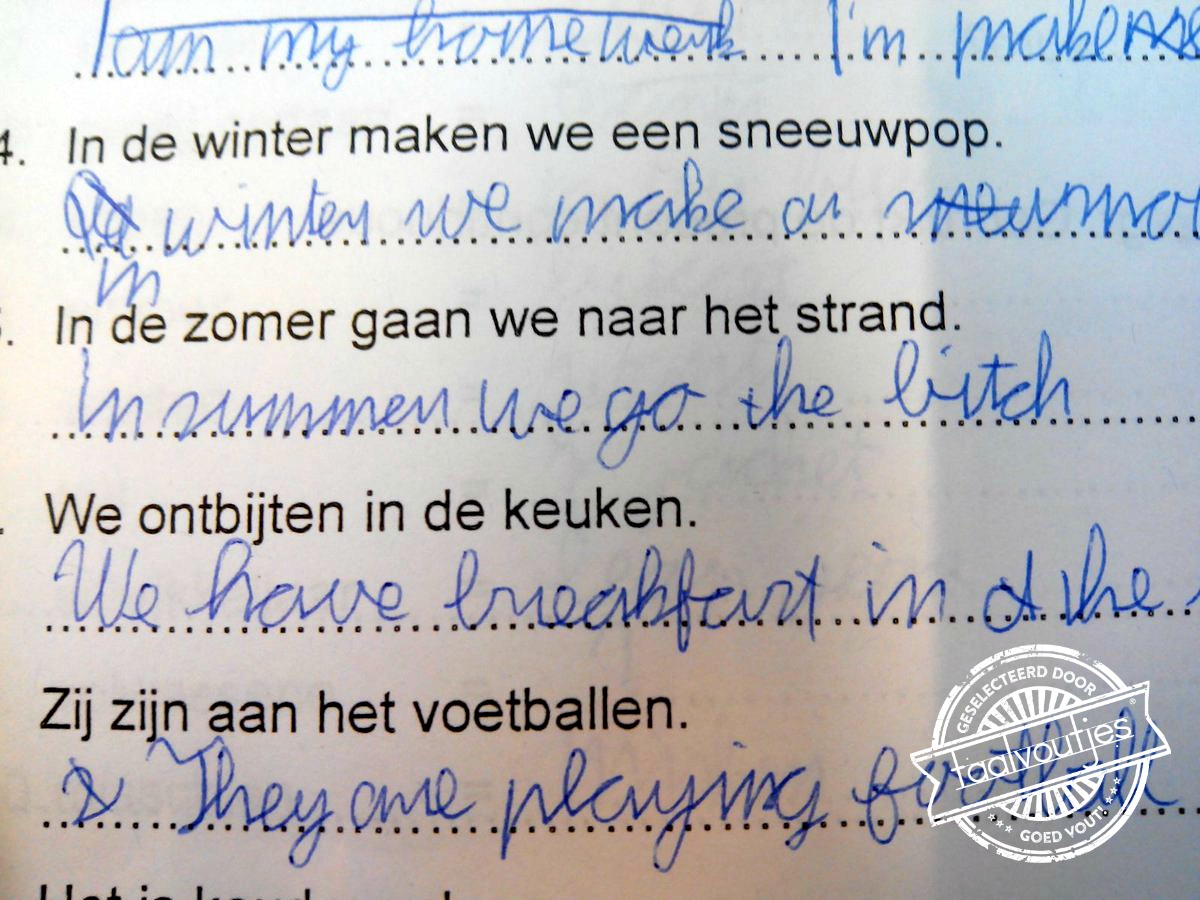 I am my homework I'm make
4. In de winter maken we een sneeuwpop.
winter we make an
in
5. In de zomer gaan we naar het strand.
In summer we go the bitch
. We ontbijten in de keuken.
We have breakfast in the
Zij zijn aan het voetballen.
They are playing football
GESELECTEERD DOOR
taalvoutjes
GOED VOUT!
Het is